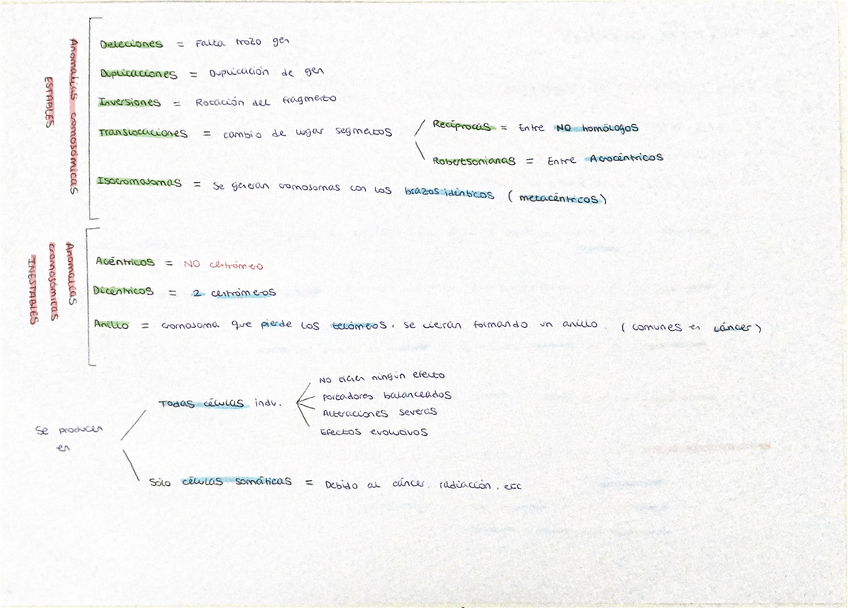 Anomalías cromosómicas
ESTABLES
Deleciones = Falta trozo gen
Duplicaciones = Duplicación de gen
Inversiones = Rotación del fragmento
Translocaciones = cambio de lugar segmentos
Recíprocas = Entre NO homólogos
Robertsonianas = Entre Acrocéntricos
Isocromosomas = se generan cromosomas con los brazos idénticos (metacéntricos)
Anomalías
cromosómicas
INESTABLES
Acéntricos = NO centrómero
Dicéntricos = 2 centrómeros
Anillo = cromosoma que pierde los telómeros, se cierran formando un anillo. (comunes en cáncer)
Se producen
en
Todas células indv.
No tienen ningún efecto
Portadores balanceados
Alteraciones severas
Efectos evolutivos
Sólo células somáticas = Debido al cáncer, radiación, etc